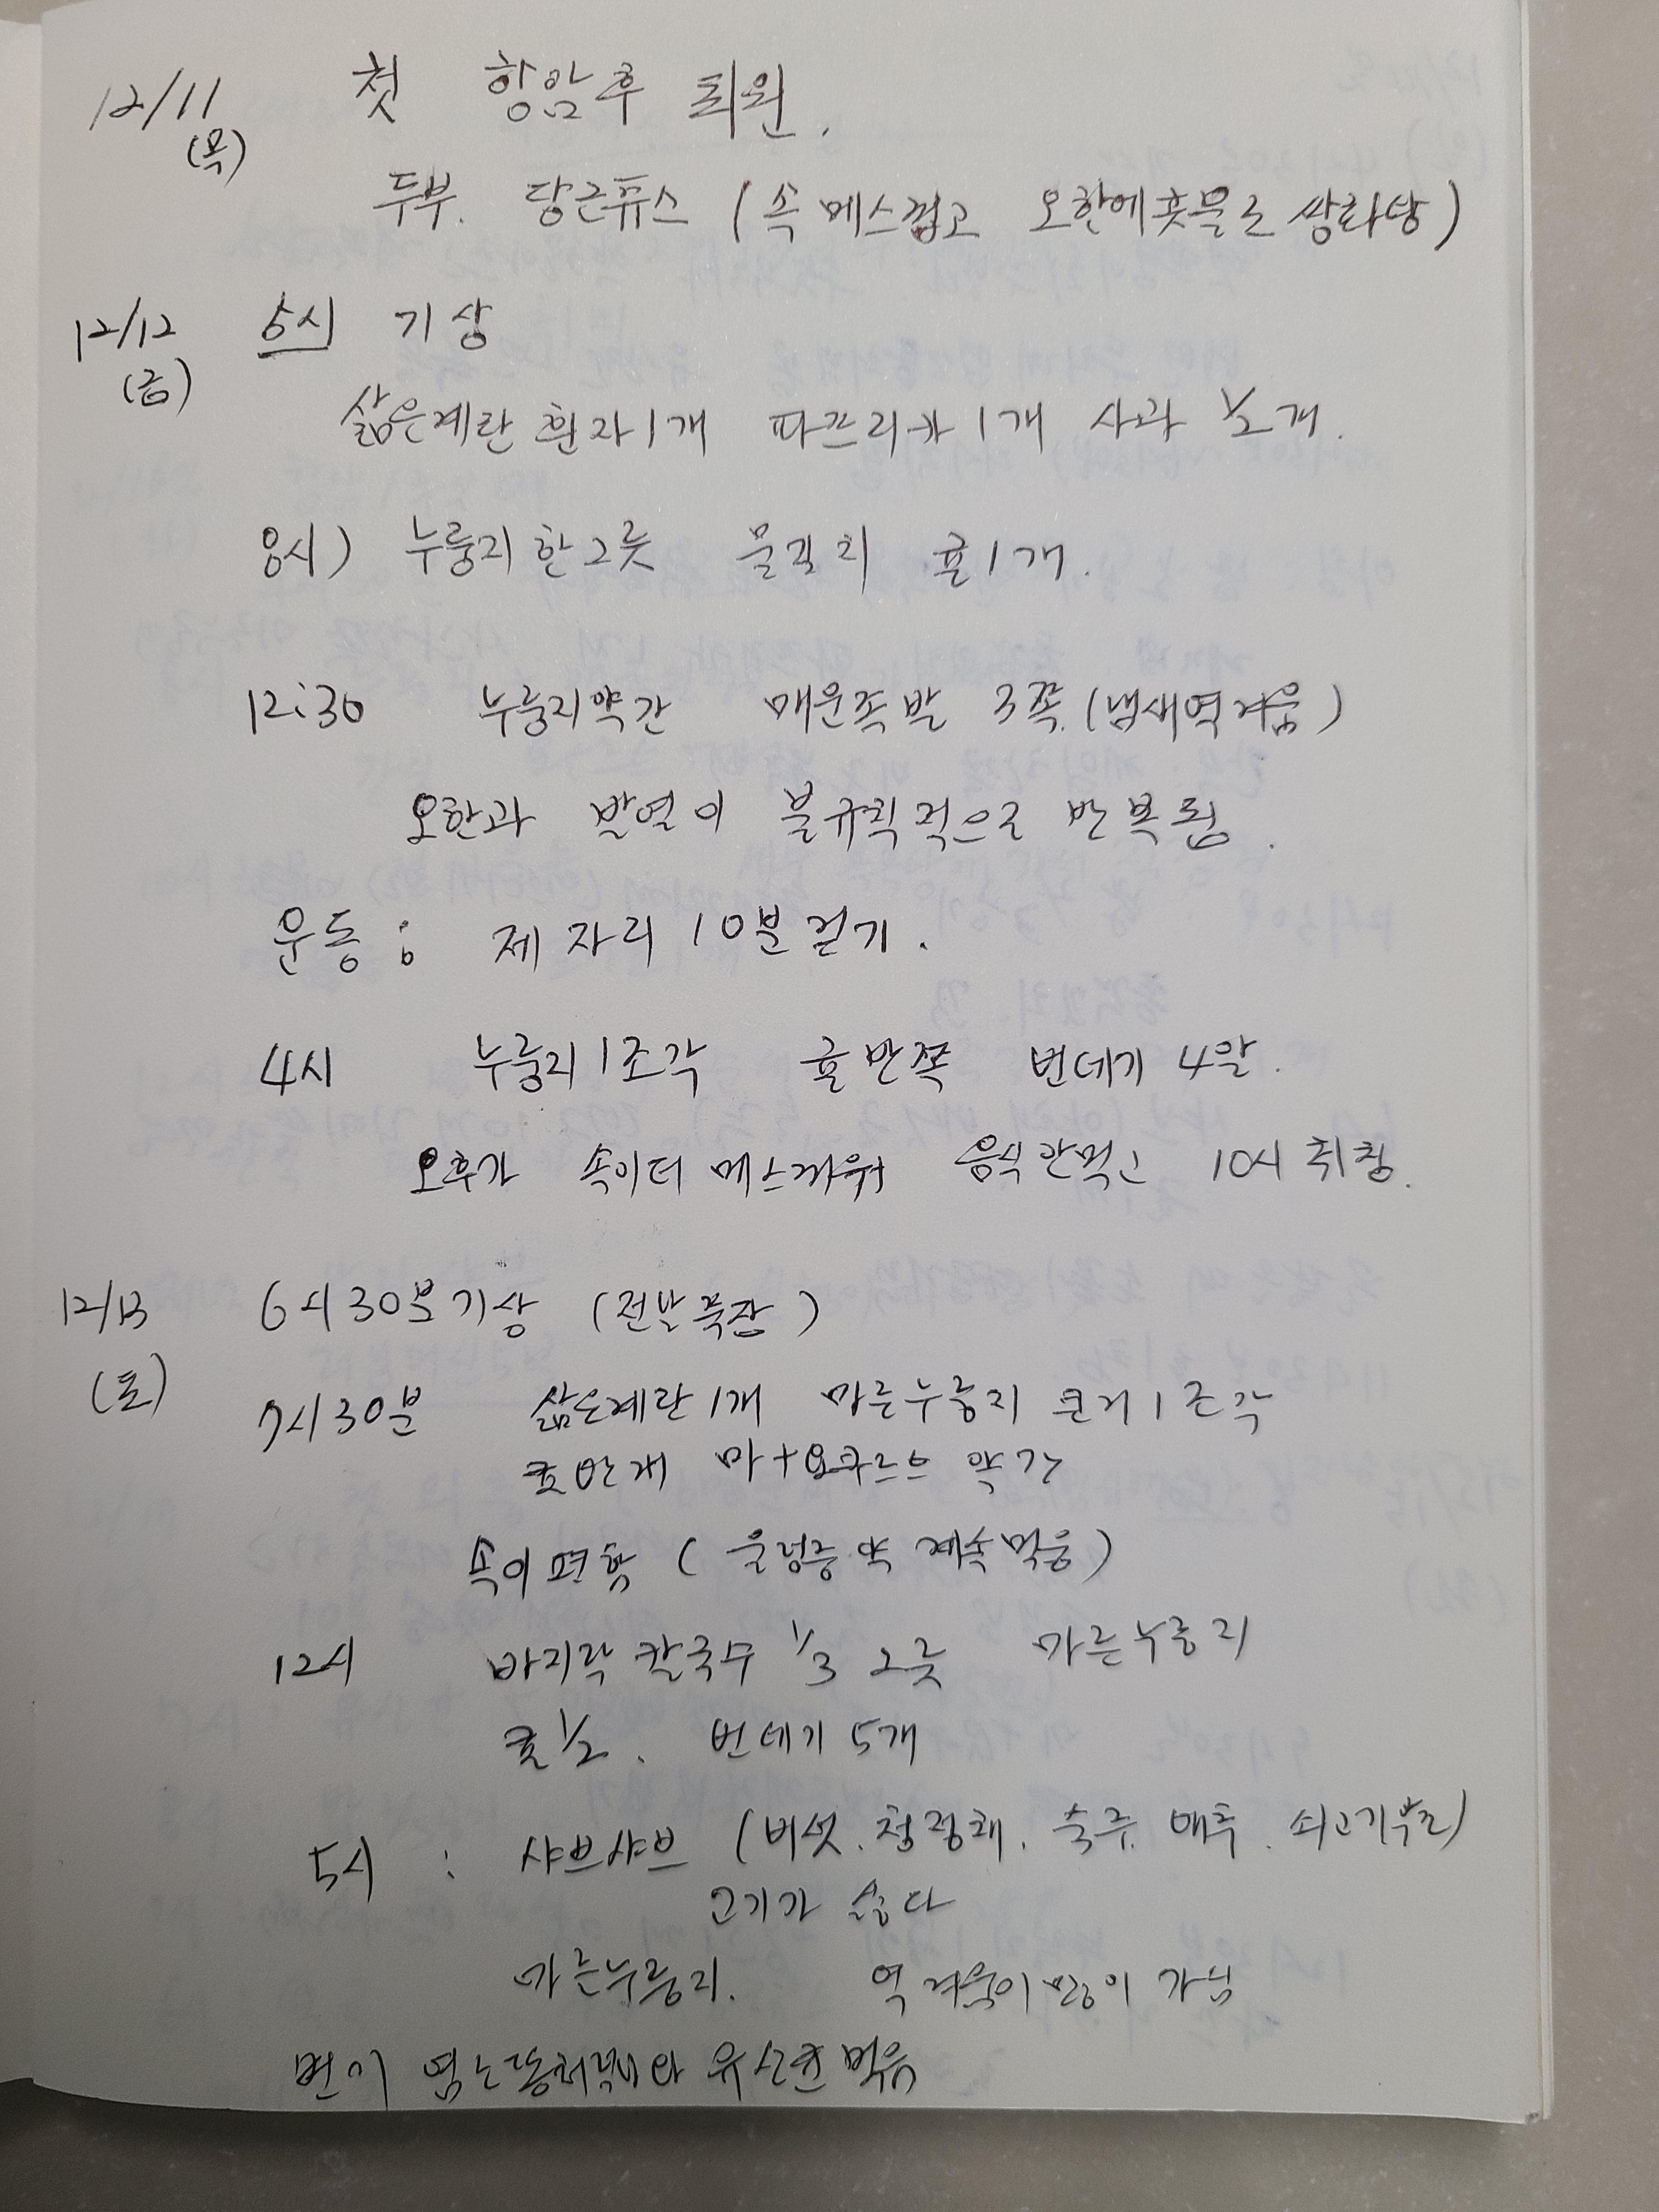 12/11 첫 항암후 퇴원.
(목)
두부. 당근쥬스 (속 메스껍고 오한에 콧물로 쌍화탕)
12/12 5시 기상
(금)
삶은계란 흰자1개 파프리카 1개 사과 1/2개.
8시) 누룽지한그릇 물김치 귤1개.
12:30 누룽지약간 매운족발 3쪽.(냄새역겨움)
오한과 발열이 불규칙적으로 반복됨.
운동 : 제자리 10분걷기.
4시 누룽지1조각 귤반쪽 번데기 4알.
오후가 속이더 메스꺼워 음식안먹고 10시 취침.
12/13 6시30분기상 (전날 복장)
(토)
7시30분 삶은계란1개 마른누룽지 큰거1조각
귤반개 마+요쿠르트 약간
속이편함 (울렁증약 계속먹음)
12시 바지락칼국수 1/3 그릇 마른누룽지
귤1/2. 번데기 5개
5시 : 샤브샤브 (버섯. 청경채. 숙주. 배추. 쇠고기부위)
고기가 싫다
마른누룽지. 역겨움이많이 가심
변이 유산균 먹음